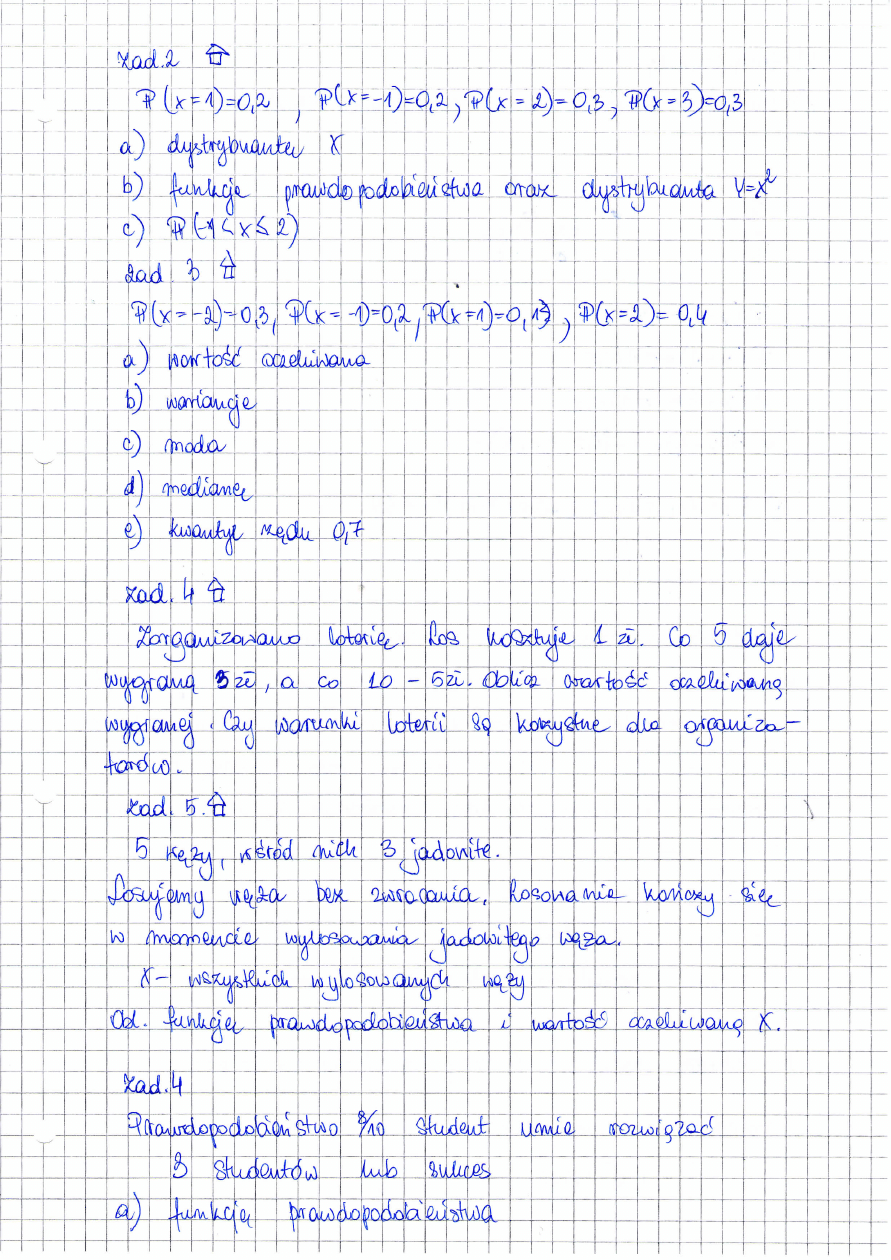 zad.2
P(x=1)=0,2 , P(x=-1)=0,2, P(x=2)=0,3, P(x=3)=0,3
a) dystrybuantę X
b) funkcję prawdopodobieństwa oraz dystrybuanta Y=X²
c) P(-1<x≤2)
zad. 3
P(x=-2)=0,3, P(x=-1)=0,2, P(x=1)=0,1, P(x=2)=0,4
a) wartość oczekiwana
b) wariancje
c) moda
d) medianę
e) kwantyl rzędu 0,7
zad. 4
Zorganizowano loterię. Los kosztuje 1 zł. Co 5 daje
wygraną 3 zł, a co 10 - 5zł. Oblicz wartość oczekiwaną
wygranej. Czy warunki loterii są korzystne dla organiza-
torów.
zad. 5.
5 węży, wśród nich 3 jadowite.
Losujemy węża bez zwracania. Losowanie kończy się
w momencie wylosowania jadowitego węża.
X- wszystkich wylosowanych węży
Obl. funkcję prawdopodobieństwa i wartość oczekiwaną X.
zad.4
Prawdopodobieństwo 8/10 student umie rozwiązać
3 studentów lub sukces
a) funkcję prawdopodobieństwa